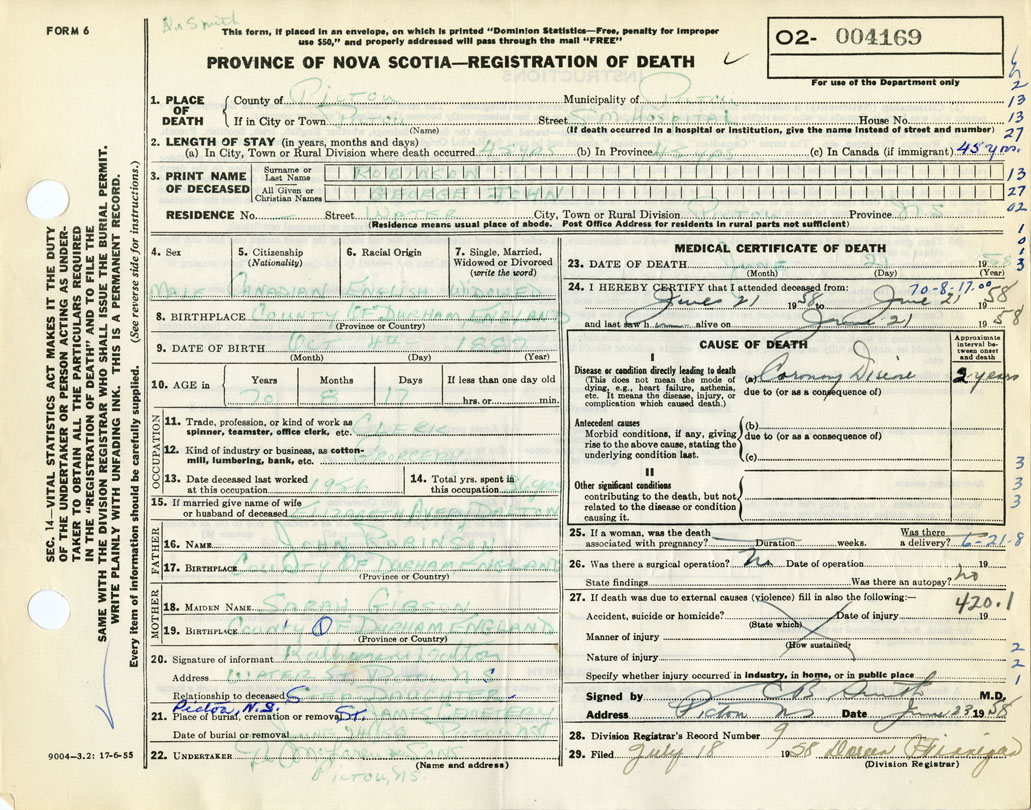 Dr Smith
FORM 6
This form, if placed in an envelope, on which is printed "Dominion Statistics—Free, penalty for improper
use $50," and properly addressed will pass through the mail "FREE"
PROVINCE OF NOVA SCOTIA—REGISTRATION OF DEATH
02- 004169
For use of the Department only
1. PLACE OF DEATH
County of Pictou Municipality of Pictou
If in City or Town Pictou Street S M Hospital House No.
(Name) (If death occurred in a hospital or institution, give the name instead of street and number)
2. LENGTH OF STAY (in years, months and days)
(a) In City, Town or Rural Division where death occurred 45 yrs (b) In Province 45 yrs (c) In Canada (if immigrant) 45 yrs.
3. PRINT NAME OF DECEASED
Surname or Last Name ROBINSON
All Given or Christian Names GEORGE JOHN
RESIDENCE No. — Street WATER City, Town or Rural Division PICTOU Province N.S
(Residence means usual place of abode. Post Office Address for residents in rural parts not sufficient)
4. Sex 5. Citizenship (Nationality) 6. Racial Origin 7. Single, Married, Widowed or Divorced (write the word)
MALE CANADIAN ENGLISH WIDOWED
8. BIRTHPLACE COUNTY OF DURHAM, ENGLAND
(Province or Country)
9. DATE OF BIRTH Oct 4th 1887
(Month) (Day) (Year)
10. AGE in Years Months Days If less than one day old
70 8 17 hrs. or min.
OCCUPATION
11. Trade, profession, or kind of work as
spinner, teamster, office clerk, etc. CLERK
12. Kind of industry or business, as cotton-
mill, lumbering, bank, etc. GROCERY
13. Date deceased last worked
at this occupation 1956
14. Total yrs. spent in
this occupation 36 yrs
15. If married give name of wife
or husband of deceased ELIZABETH DALTON
FATHER
16. NAME JOHN ROBINSON
17. BIRTHPLACE COUNTY OF DURHAM ENGLAND
(Province or Country)
MOTHER
18. MAIDEN NAME SARAH GIBSON
19. BIRTHPLACE COUNTY OF DURHAM ENGLAND
(Province or Country)
20. Signature of informant Katherine Dalton
Address WATER ST. PICTOU N S
Relationship to deceased STEP DAUGHTER
Pictou, N.S.
21. Place of burial, cremation or removal St. JAMES CEMETERY
Date of burial or removal
22. UNDERTAKER & SONS
(Name and address)
PICTOU, NS
9004—3.2: 17-6-55
MEDICAL CERTIFICATE OF DEATH
23. DATE OF DEATH June 21 1958
(Month) (Day) (Year)
70-8-17.00
24. I HEREBY CERTIFY that I attended deceased from:
June 21 1958 to June 21 1958
and last saw h alive on June 21 1958
CAUSE OF DEATH
Approximate interval between onset and death
I
Disease or condition directly leading to death
(This does not mean the mode of
dying, e.g., heart failure, asthenia,
etc. It means the disease, injury, or
complication which caused death.)
(a) Coronary Disease 2 years
due to (or as a consequence of)
Antecedent causes
Morbid conditions, if any, giving
rise to the above cause, stating the
underlying condition last.
(b)
due to (or as a consequence of)
(c)
II
Other significant conditions
contributing to the death, but not
related to the disease or condition
causing it.
25. If a woman, was the death
associated with pregnancy? Duration weeks. Was there
a delivery? 6-21-8
26. Was there a surgical operation? No Date of operation 19
State findings Was there an autopsy? No
27. If death was due to external causes (violence) fill in also the following:— 420.1
Accident, suicide or homicide? Date of injury 19
(State which)
Manner of injury
(How sustained)
Nature of injury
Specify whether injury occurred in industry, in home, or in public place
Signed by C B Smith M.D.
Address Pictou NS Date June 23 1958
28. Division Registrar's Record Number 9
29. Filed July 18 1958 Doreen Finnigan
(Division Registrar)
SEC. 14—VITAL STATISTICS ACT MAKES IT THE DUTY
OF THE UNDERTAKER OR PERSON ACTING AS UNDER-
TAKER TO OBTAIN ALL THE PARTICULARS REQUIRED
IN THE "REGISTRATION OF DEATH" AND TO FILE THE
SAME WITH THE DIVISION REGISTRAR WHO SHALL ISSUE THE BURIAL PERMIT.
WRITE PLAINLY WITH UNFADING INK. THIS IS A PERMANENT RECORD.
Every item of information should be carefully supplied. (See reverse side for instructions.)
2
13
13
27
13
27
02
1
0
1
3
3
3
3
2
2
1